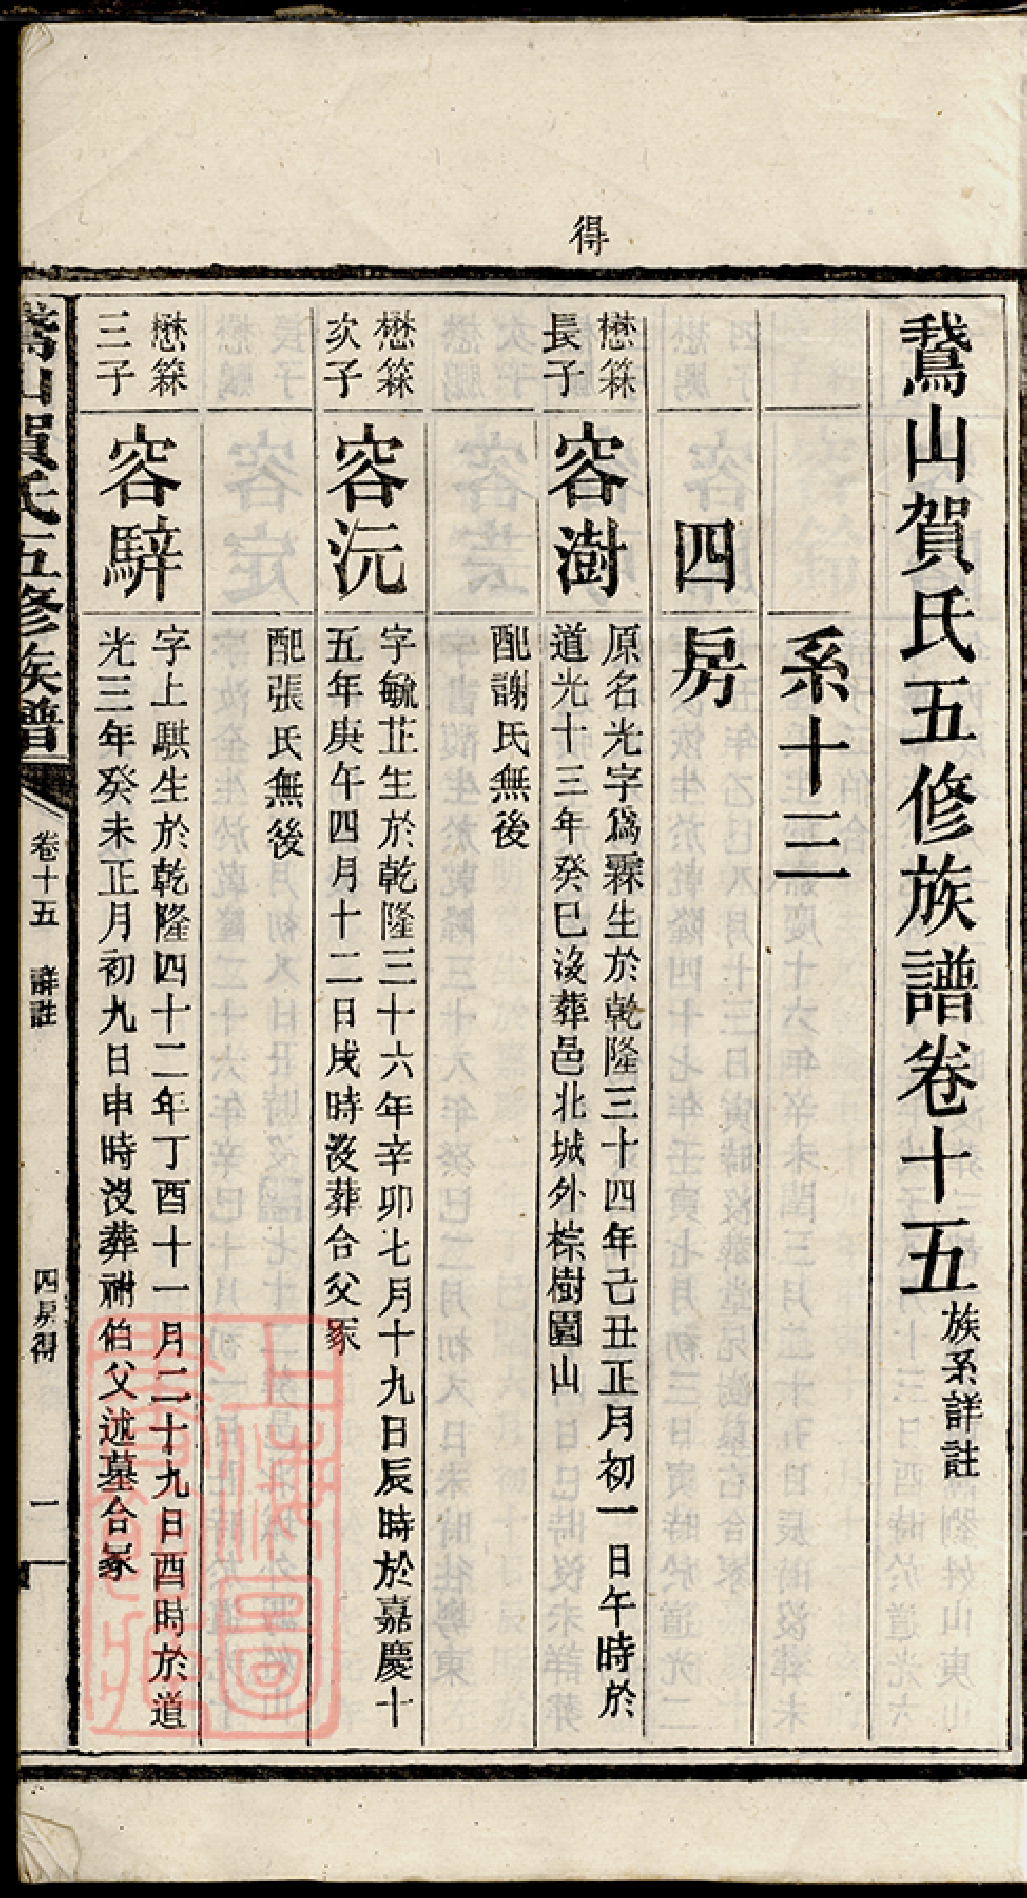 得
鵞山賀氏五修族譜卷十五
族系詳註
系十三
四房
懋箖
長子
容澍
原名光字爲霖生於乾隆三十四年己丑正月初一日午時於
道光十三年癸巳沒葬邑北城外棕樹園山
配謝氏無後
懋箖
次子
容沅
字毓芷生於乾隆三十六年辛卯七月十九日辰時於嘉慶十
五年庚午四月十二日戌時沒葬合父冢
配張氏無後
懋箖
三子
容騂
字上騏生於乾隆四十二年丁酉十一月二十九日酉時於道
光三年癸未正月初九日申時沒葬祔伯父述墓合冢
鵞山賀氏五修族譜
卷十五
詳註
四房得
一
上海圖書館藏